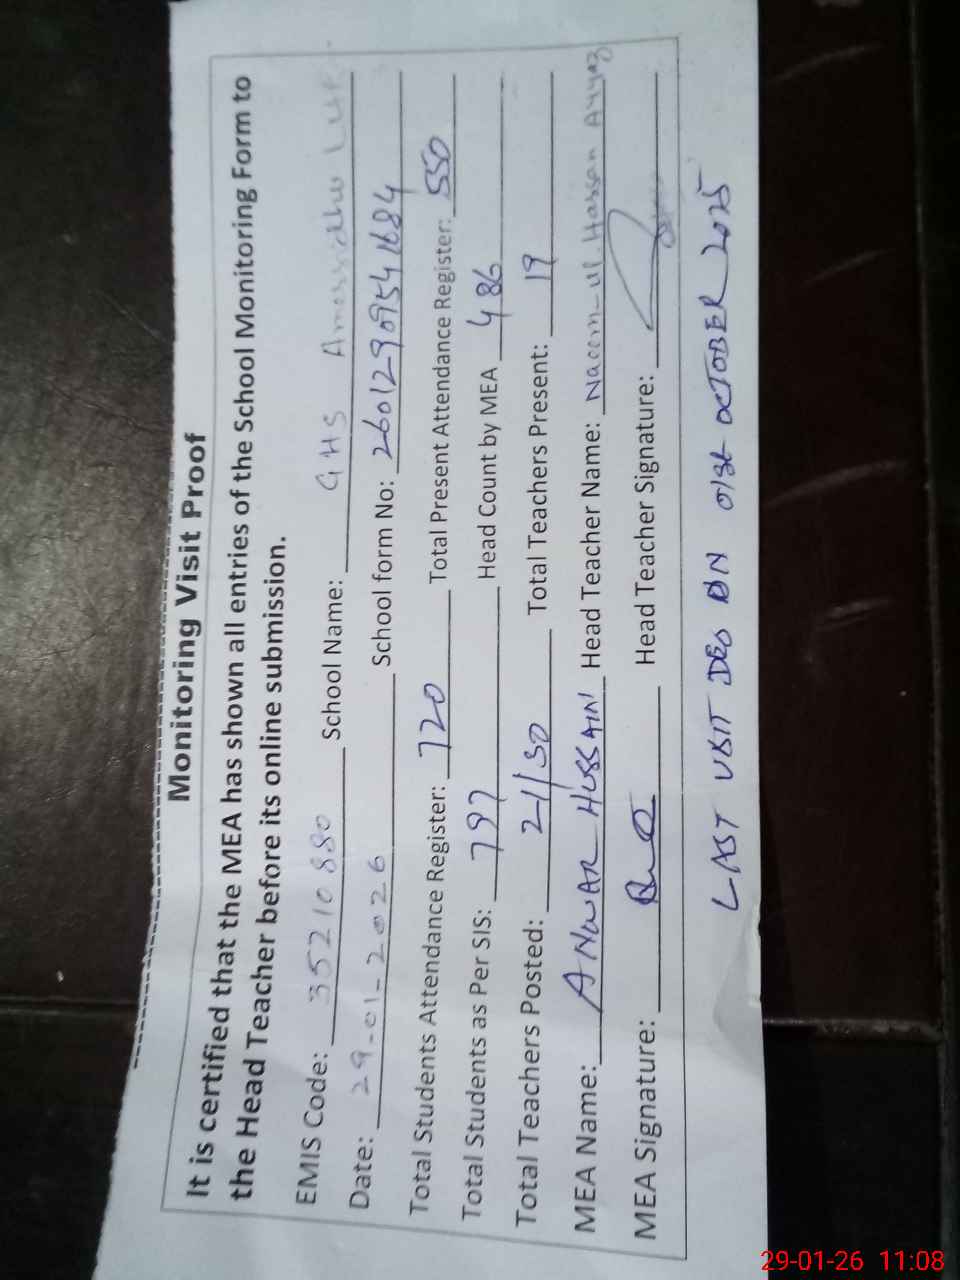 Monitoring Visit Proof
It is certified that the MEA has shown all entries of the School Monitoring Form to
the Head Teacher before its online submission.
EMIS Code: 35210880 School Name: GHS Amarsidhu LHR
Date: 29-01-2026 School form No: 26012909541684
Total Students Attendance Register: 720 Total Present Attendance Register: 550
Total Students as Per SIS: 797 Head Count by MEA 486
Total Teachers Posted: 21/30 Total Teachers Present: 19
MEA Name: ANWAR HUSSAIN Head Teacher Name: Naeem-ul-Hassan Ayyaz
MEA Signature: Head Teacher Signature:
LAST VISIT ON 01st OCTOBER 2025
29-01-26 11:08